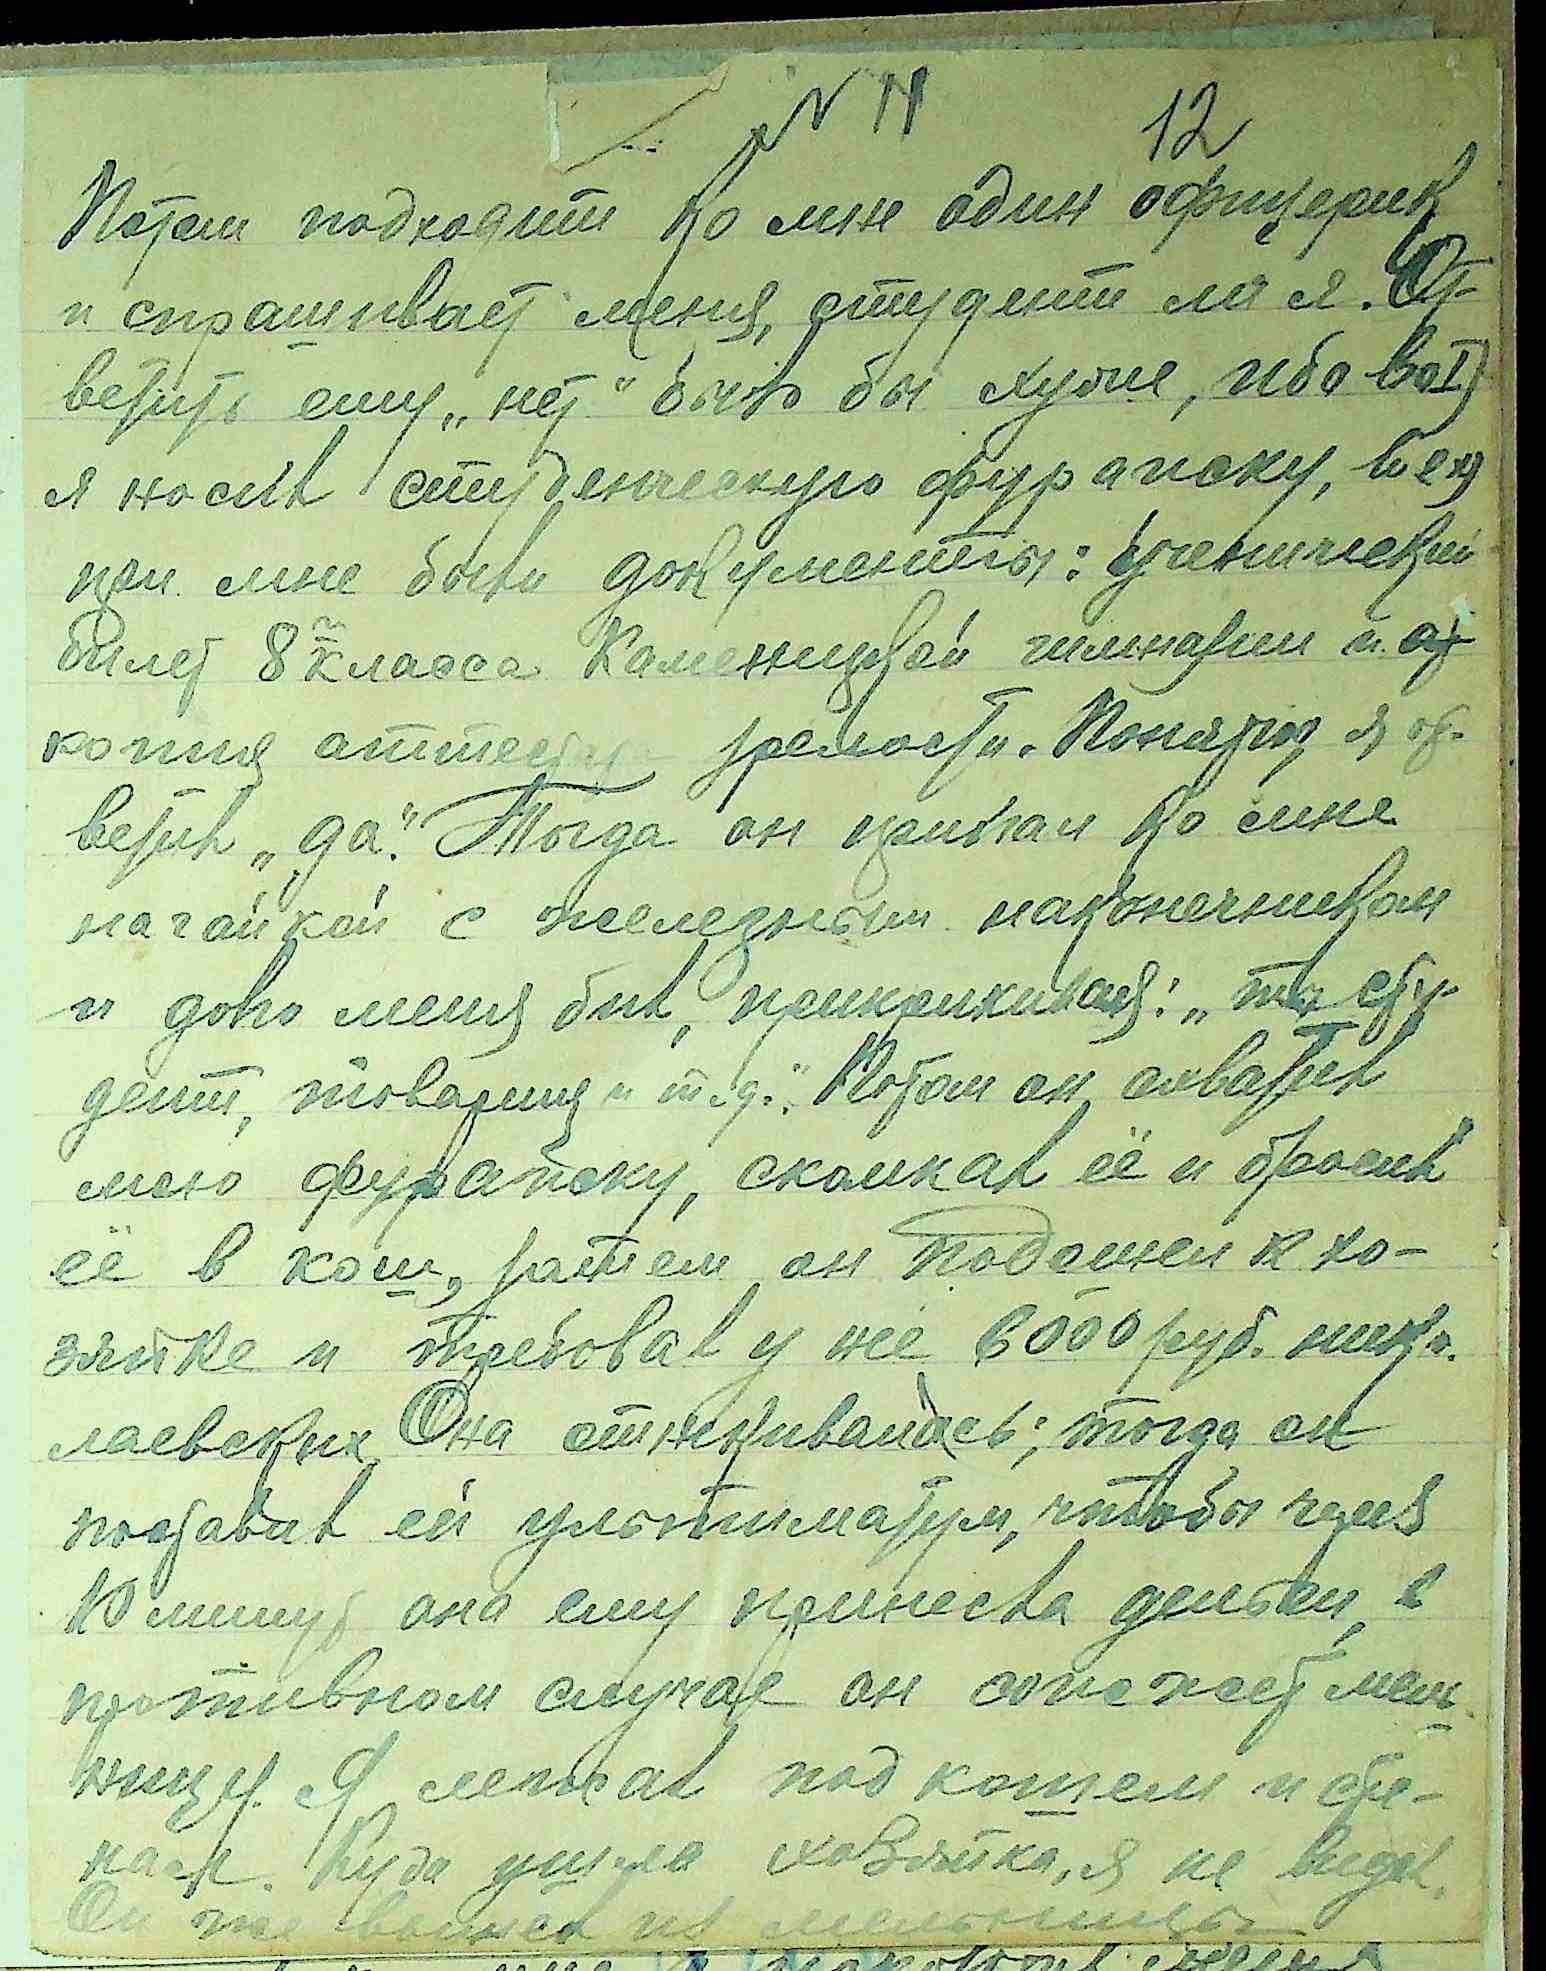 N 11 12
Потом подходит ко мне один офицерик
и спрашивает меня, студент ли я. От-
ветить ему „нет" было бы хуже, ибо во I)
я носил студенческую фуражку, во 2х)
при мне были документы: ученический
билет 8го класса Каменицкой гимназии и
копия аттеста зрелости. Понятно, я от-
ветил „да". Тогда он пришел ко мне
нагайкой с железным наконечником
и долго меня бил, прикрикивая: „ты сту-
дент, товарищ и т.д." Потом он схватил
мою фуражку, скомкал её и бросил
её в кош, затем он подошел к хо-
зяйке и требовал у неё 6000 руб. нико-
лаевских. Она отнекивалась; тогда он
поставил ей ультиматум, чтобы через
10 минут она ему принесла деньги, в
противном случае он сожжет мель-
ницу. Я лежал под кошем и сте-
нал. Куда ушла хозяйка, я не видел.
Он же вышел из мельницы